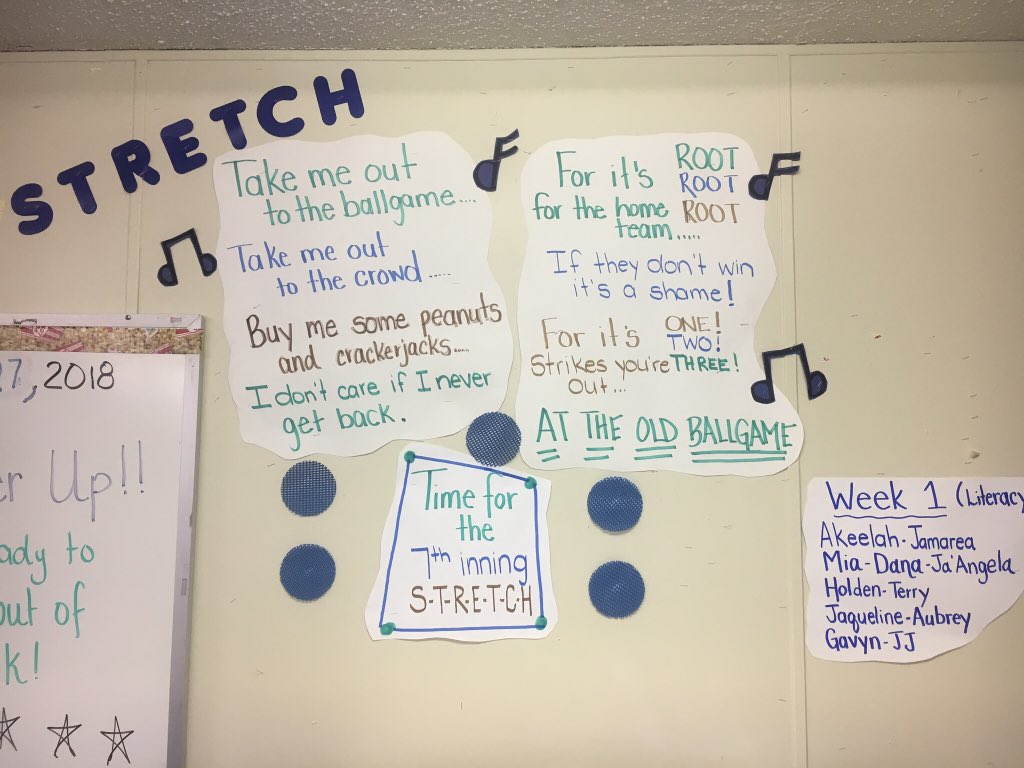 STRETCH
Take me out
to the ballgame....
Take me out
to the crowd.....
Buy me some peanuts
and crackerjacks....
I don't care if I never
get back.
For it's ROOT
ROOT
for the home ROOT
team.....
If they don't win
it's a shame!
For it's ONE!
TWO!
Strikes you're THREE!
out...
AT THE OLD BALLGAME
Time for
the
7th inning
S-T-R-E-T-C-H
27, 2018
Up!!
to
out of
Week 1 (Literacy
Akeelah-Jamarea
Mia-Dana-Ja'Angela
Holden-Terry
Jaqueline-Aubrey
Gavyn-JJ